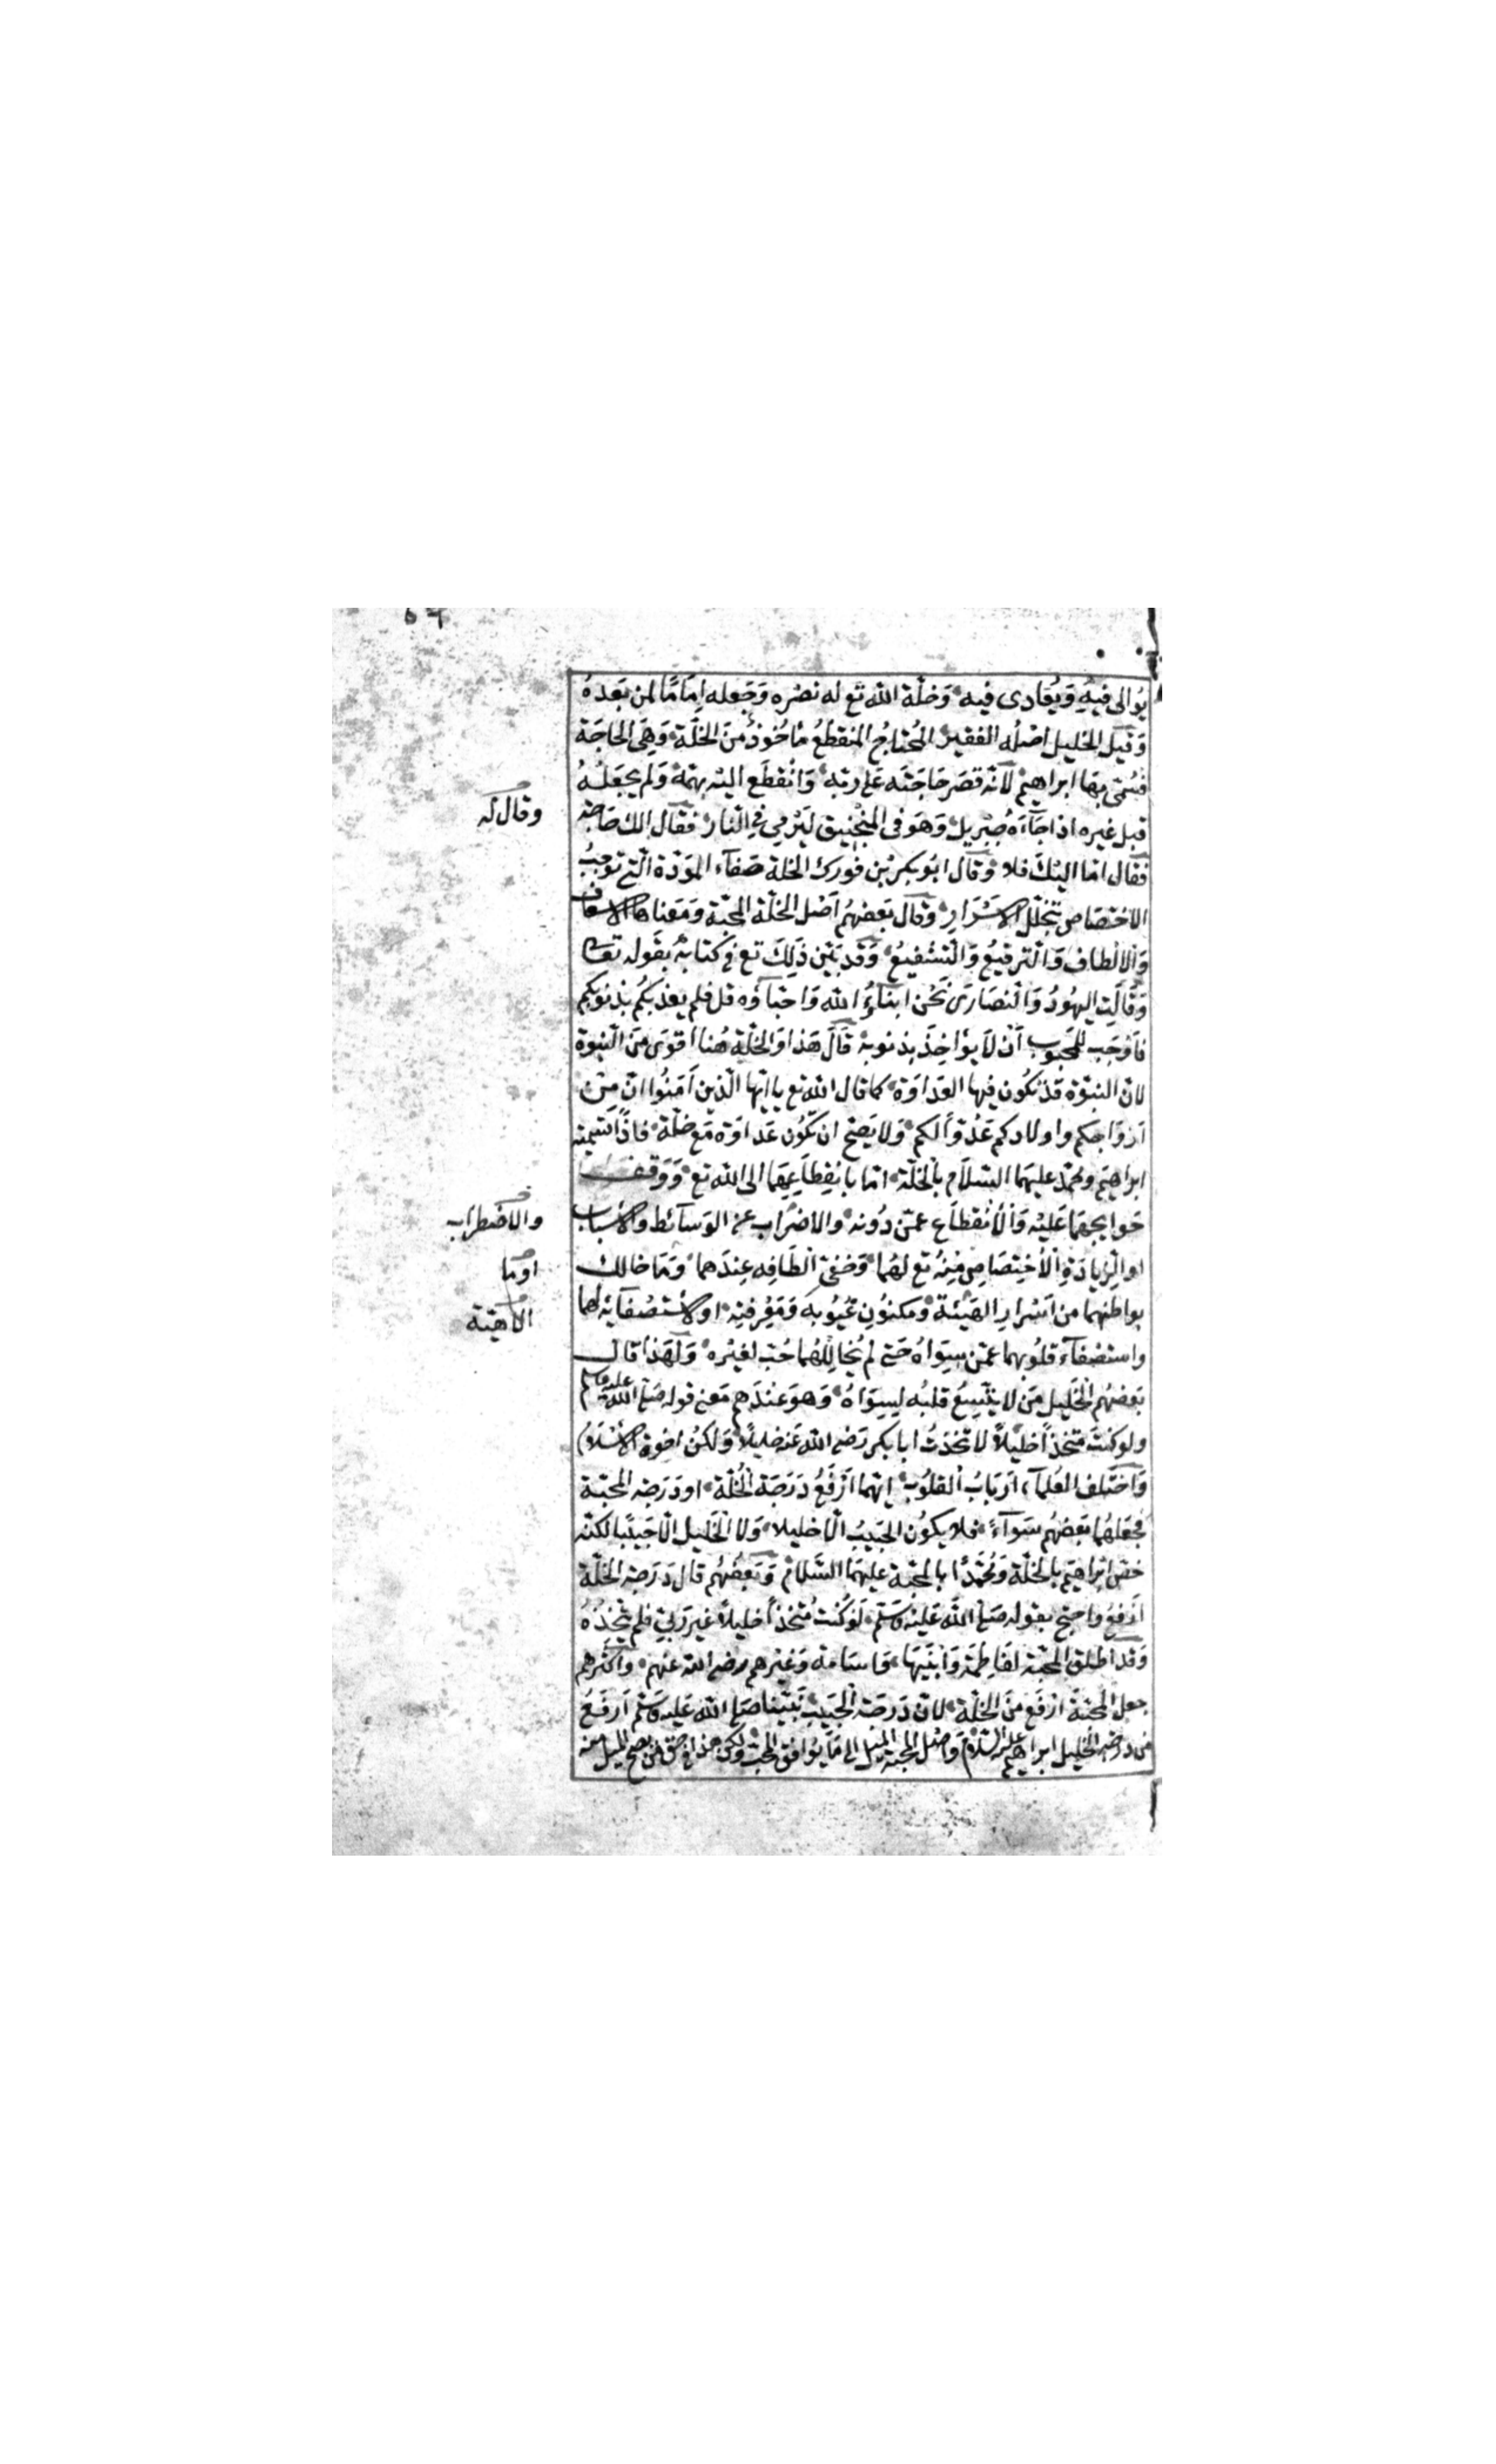 يُوالى فيهِ وَيُعَادى فيه وَخلّة الله تع له نصْره وَجَعله اِمَامًا لمن بَعْدهُ
وَقيل الخليل اصْلُه الفقير المُحتاجُ المنقطعُ مَأخُوذٌ مِنَ الخَلّة وَهيَ الحاجَة
فسُمّىَ بهَا ابراهيمُ لانّه قصَر حَاجَته عَلى ربّه وَانْقطَع اليْه بهمّه وَلم يجعَلْهُ
قبل غيره اذا جَآءَهُ جبْريل وَهوَ فى المنْجَنيق ليُرْمي فى النّار فقَال الك حَاجة
فقال امّا اليْكَ فلا وَقال ابُو بكر بْن فورك الخلة صَفآء المَوَدّة الّتي توجبُ
الاخْتصَاص بتخَلّل الاسْرَارِ وَقال بَعضهُم اصْل الخلّة المحبّة وَمَعناها الاسْعاف
وَالالطاف وَالترفيعُ وَالتشفيعُ وَقد بَيّن ذَلِكَ تع فى كتابهُ بقَوله تعَالى
وَقَالَتِ اليهُودُ وَالنّصَارَى نَحْن ابنآؤُ الله وَاحبّآؤه قل فلم يعذبكُم بذنوبكم
فاَوْجَب للمَحبُوبِ أَنْ لاَ يؤاخِذَ بذنوبهْ قَالَ هَذا وَالخلّة هُنا اقوَى مِنَ النبوة
لانّ النبوّة قدْ تكُون فيها العَدَاوَة كما قال الله تع يا ايّها الّذين آمَنُوا انّ مِنْ
اَزْوَاجكم واولادكم عَدُوّاً لكم وَلا يَصحّ ان تكُون عَدَاوَة مَع خلّة فاذًا تسْمية
ابراهيم ومحمّد عليهمَا السّلاَم بالخلّة امّا بانْقِطاعِهمَا الى الله تع وَوَقف
حَوايجهمَا عَليْه وَالْانْقطَاع عمّن دُونه والاضْراب عن الوَسآئط والاسْباب
او الزيادَةِ الْاخْتِصَاصِ مِنْهُ تع لهُما وَخفىّ الْطَافِه عِنْدَهما وَمَا خالك
بواطنهما من اسْرارِ الهَيْئَة وَمكنوُنِ غيُوُبِه وَمَعْرفتِه او لاستصْفآئه لهُما
واستصْفآءَ قلُوُبهما عمّن سِوَاهُ حَتى لم يُخاللهُما حُبّ لغيْره وَلهَذا قال
بَعضهُم الْخَليل مَن لا يتّسِعُ قلبُه لسِوَاهُ وَهوَ عنْدَهم مَعنى قوله صَلى الله عليه وسلم
ولو كنتَ متّخذاً خليْلاً لاتخذتُ ابا بكر رَضى الله عَنه خليلاً وَلكنْ اخوة الاسْلام
وَاختَلف العُلمآء اَربَابُ القلوُب ايّهما اَرْفَعُ دَرَجَة الْخُلّة او دَرَجة المحبّة
فجعَلهُما بَعضهُم سَوَآءً فلا يكوُن الحَبيْبُ الّا خليلا وَلا الْخَليل الّا حَبيْبًا لكنّه
خصّ ابْراهيم بالخلّة وَمُحَمّداً بالمحَبّة عليهمَا السَّلام وَبَعضُهُم قال دَرَجة الخلّة
اَرفعُ واحتج بقوله صَلى الله عَليْه وَسَلّم لَوْ كُنْتُ مُتّخذاً خليلاً غير رَبّي فلم يتّخِذْهُ
وَقد اطلق المحَبّة لفَاطِمَة وَابنَيْهَا وَاسَامة وَغيْرهم رضى الله عنهم وَاكثرهم
جعل المحبّةَ ارْفَع مِنَ الخلّة لانّ دَرَجَة الْحَبيب نَبيّنا صَلى الله عَليه وَسَلّم اَرفَعُ
من دَرجة الْخليل ابراهيم عليه السلام وَاصْل المحبّة الميْل الى مَا يُوافق المحبّ ولكن هذا فى حقّ مَن يصحّ الميل منه
وقال له
والاضطراب
اوما
الالهيّة